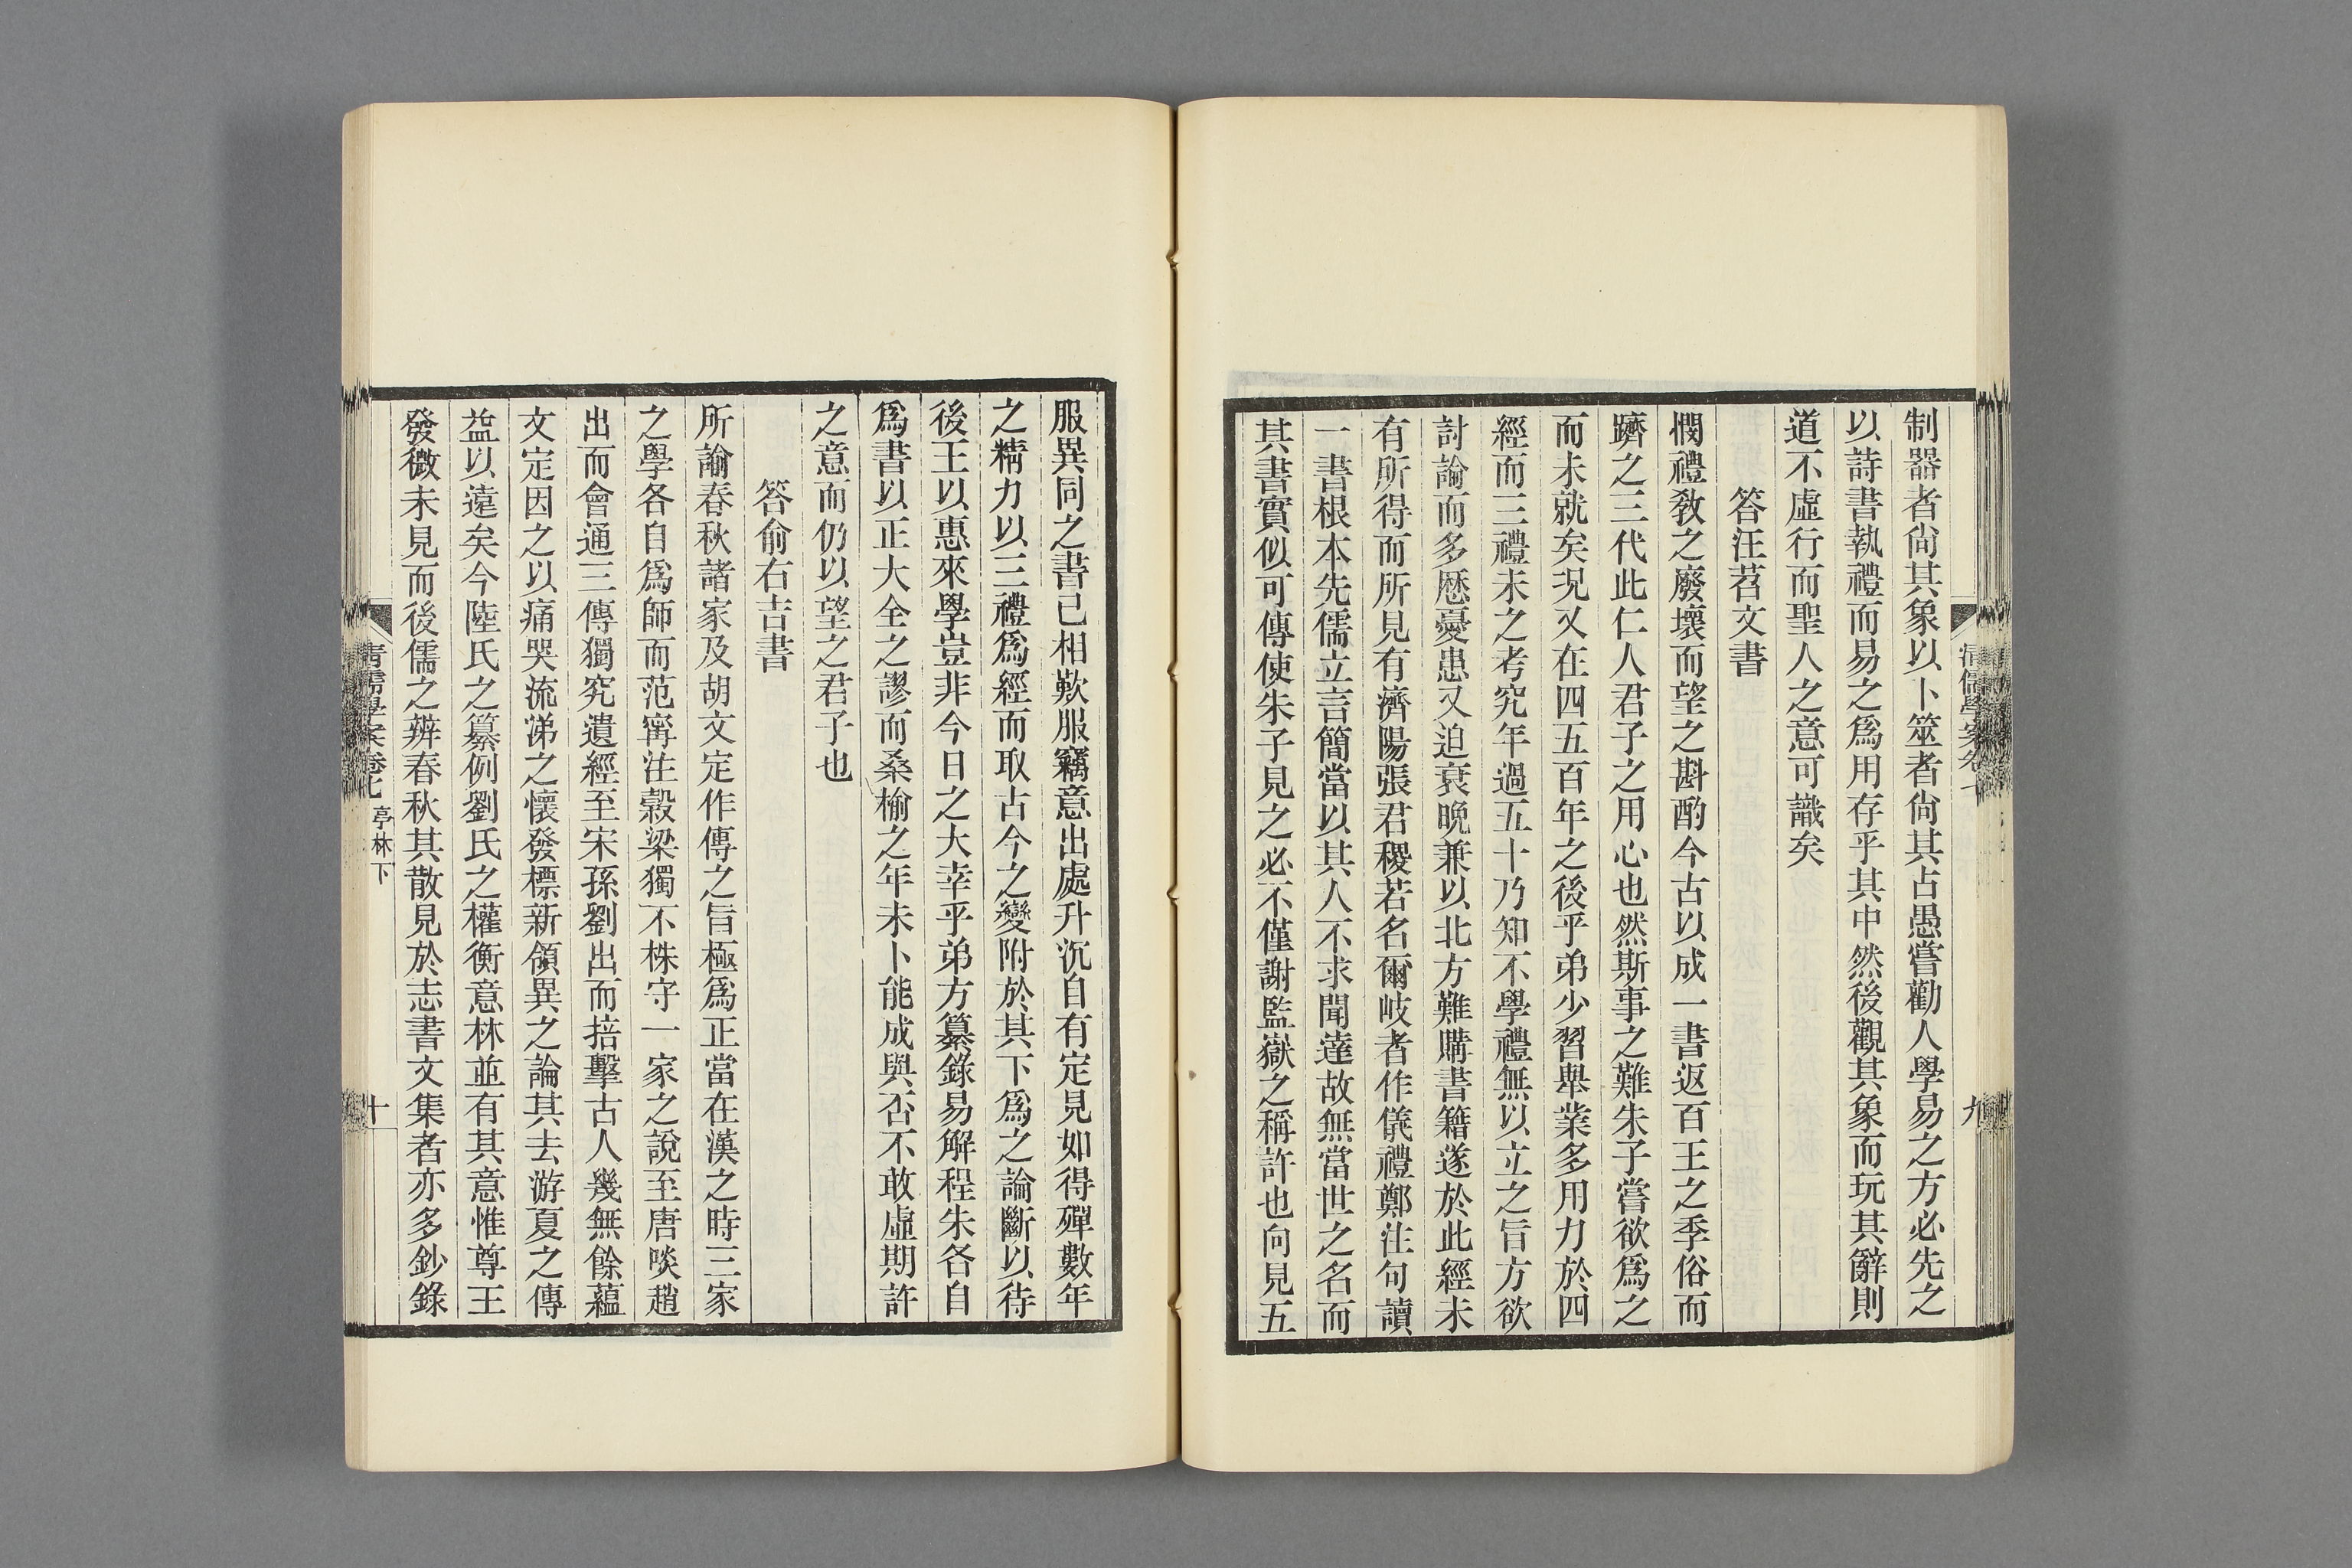 制器者尙其象以卜筮者尙其占愚嘗勸人學易之方必先之
以詩書執禮而易之爲用存乎其中然後觀其象而玩其辭則
道不虛行而聖人之意可識矣
答汪苕文書
憫禮敎之廢壞而望之斟酌今古以成一書返百王之季俗而
躋之三代此仁人君子之用心也然斯事之難朱子嘗欲爲之
而未就矣況又在四五百年之後乎弟少習舉業多用力於四
經而三禮未之考究年過五十乃知不學禮無以立之旨方欲
討論而多歷憂患又迫衰晚兼以北方難購書籍遂於此經未
有所得而所見有濟陽張君稷若名爾岐者作儀禮鄭注句讀
一書根本先儒立言簡當以其人不求聞達故無當世之名而
其書實似可傳使朱子見之必不僅謝監嶽之稱許也向見五
九
服異同之書已相歎服竊意出處升沉自有定見如得殫數年
之精力以三禮爲經而取古今之變附於其下爲之論斷以待
後王以惠來學豈非今日之大幸乎弟方纂錄易解程朱各自
爲書以正大全之謬而桑榆之年未卜能成與否不敢虛期許
之意而仍以望之君子也
答俞右吉書
所諭春秋諸家及胡文定作傳之旨極爲正當在漢之時三家
之學各自爲師而范甯注穀梁獨不株守一家之說至唐啖趙
出而會通三傳獨究遺經至宋孫劉出而掊擊古人幾無餘蘊
文定因之以痛哭流涕之懷發標新領異之論其去游夏之傳
益以遠矣今陸氏之纂例劉氏之權衡意林並有其意惟尊王
發微未見而後儒之辨春秋其散見於志書文集者亦多鈔錄
清儒學案卷七 亭林下
十